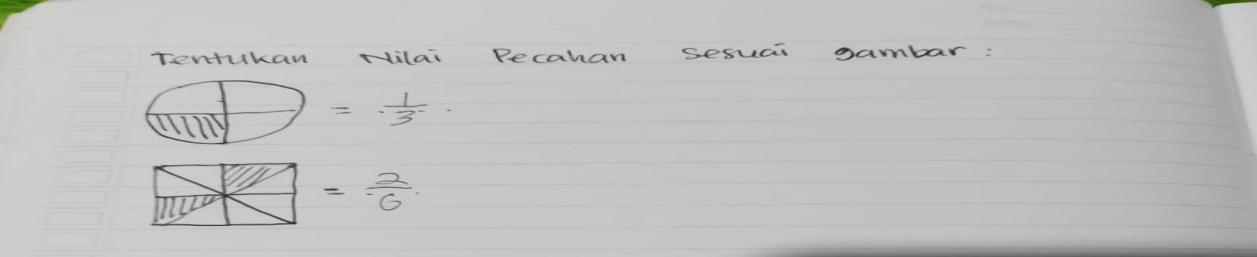 Tentukan Nilai Pecahan sesuai gambar :
= 1/3
= 2/6